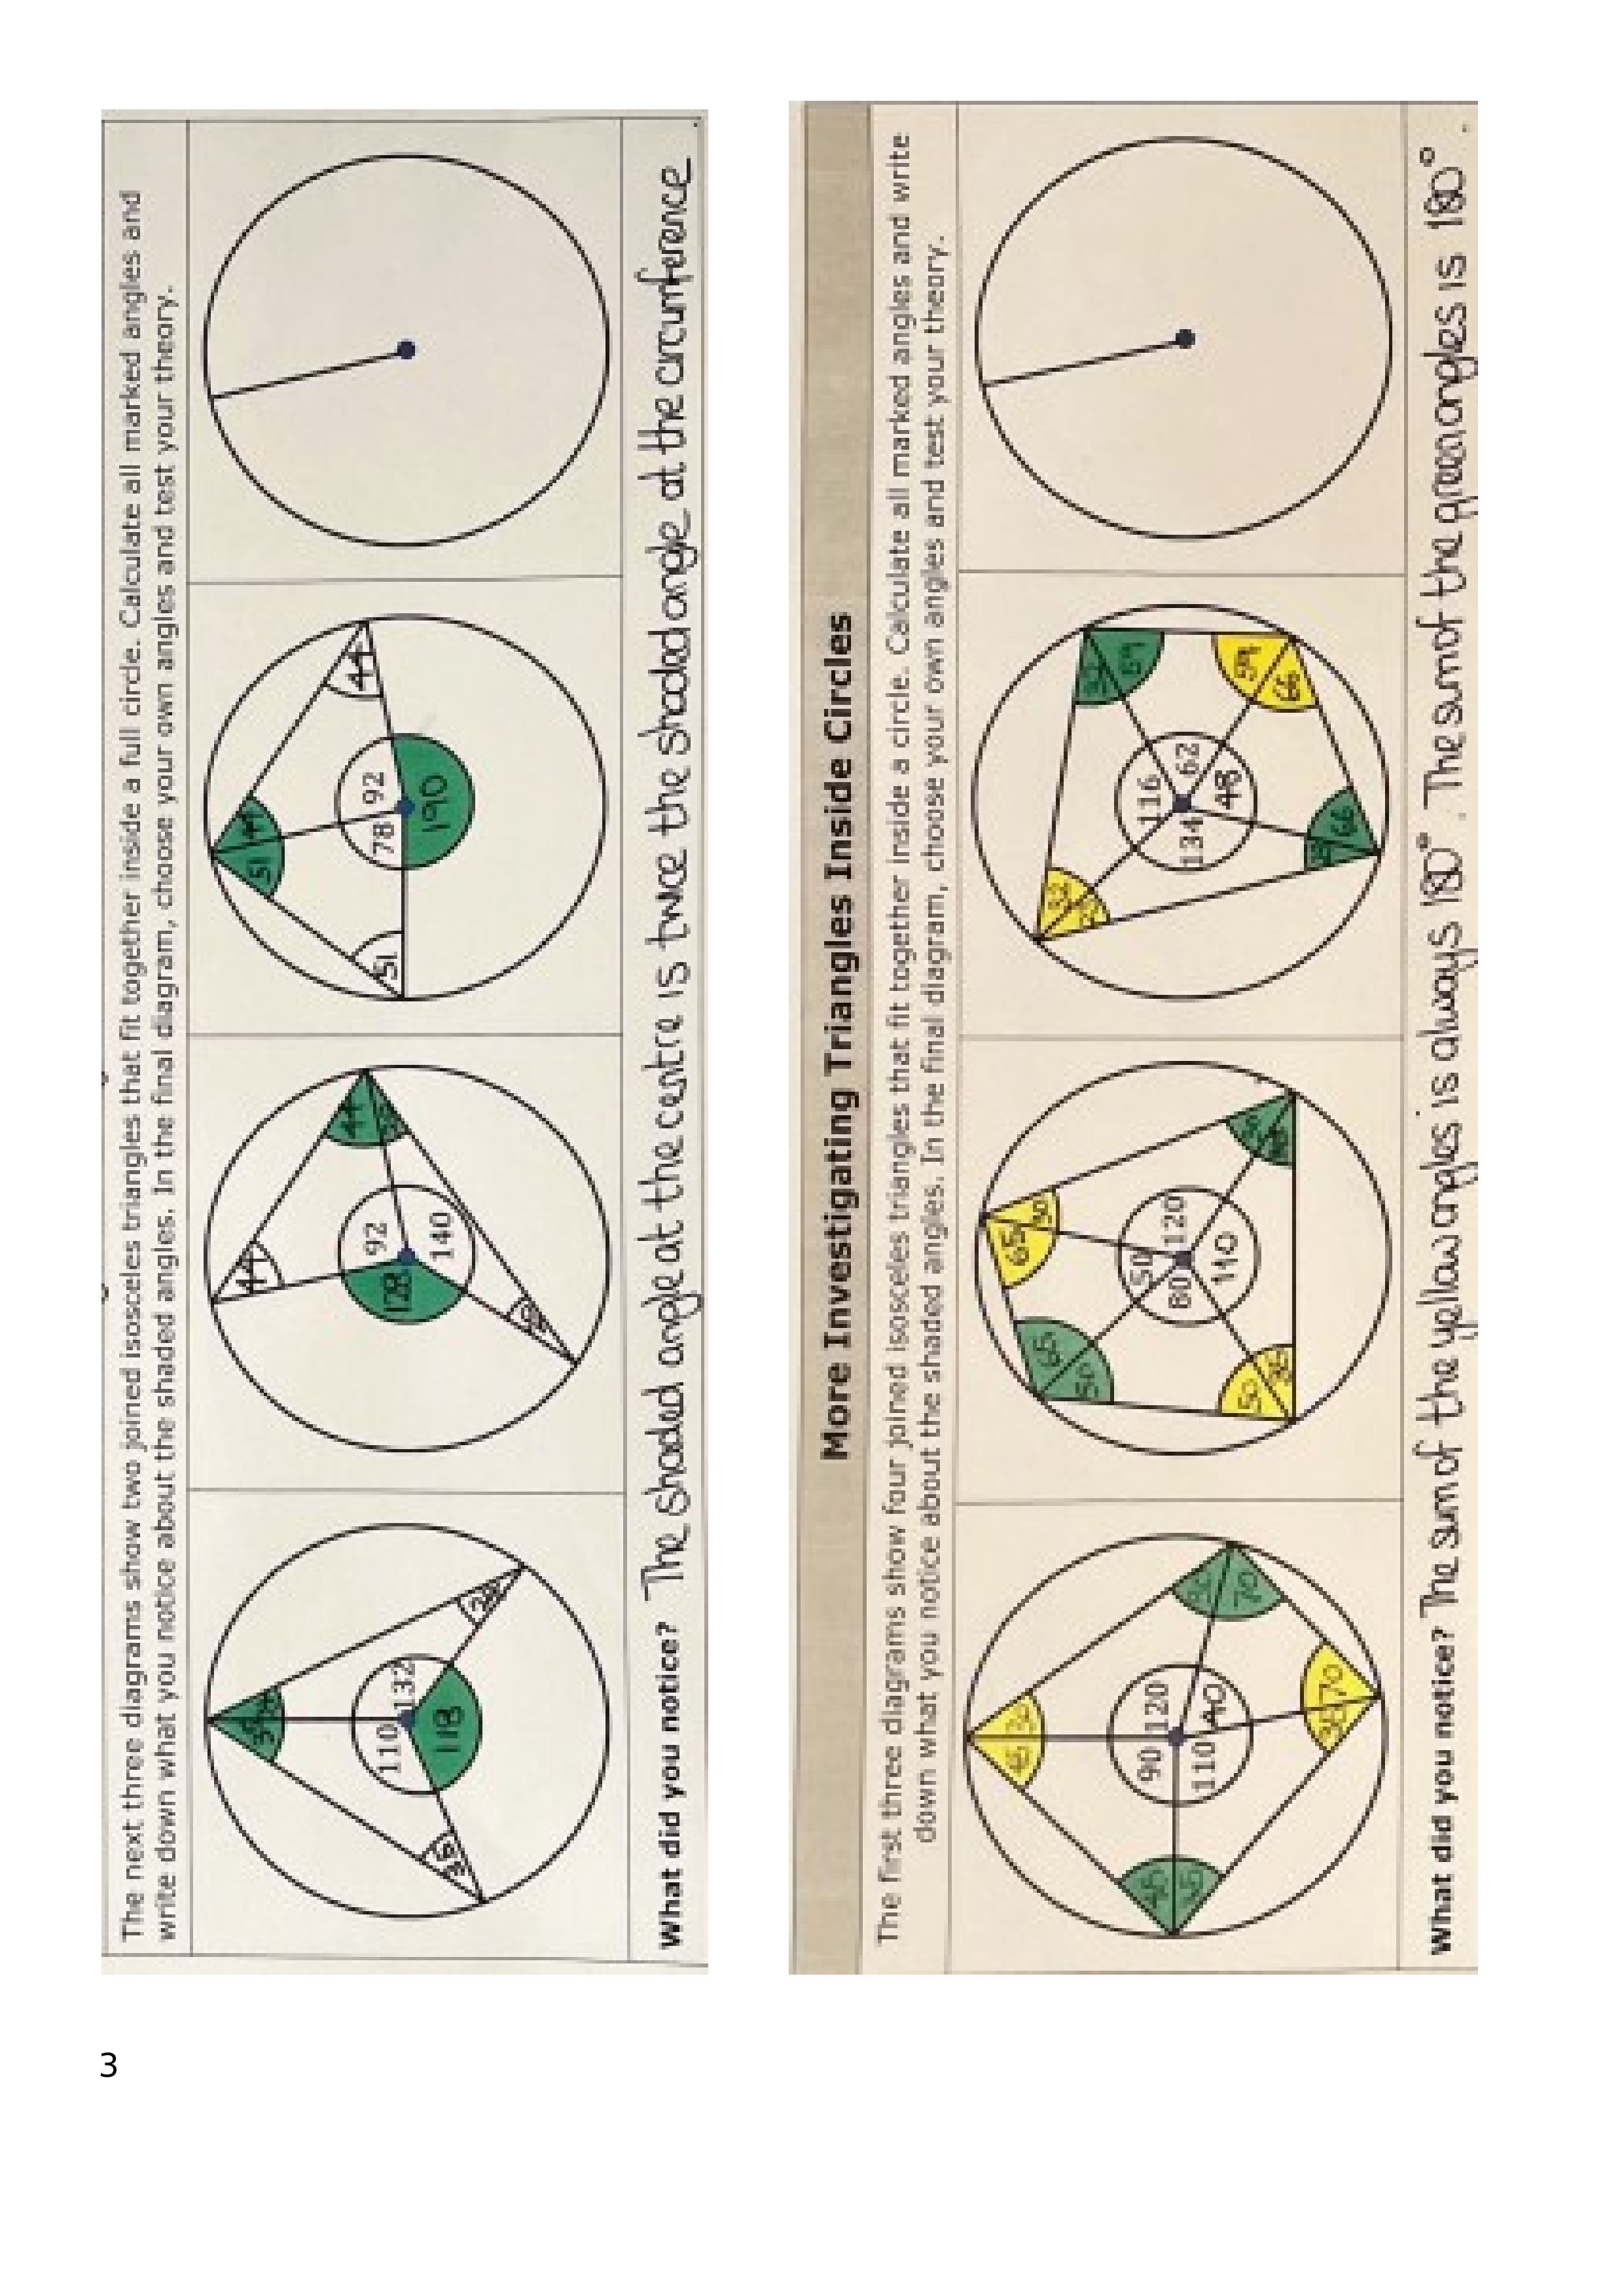 The next three diagrams show two joined isosceles triangles that fit together inside a full circle. Calculate all marked angles and
write down what you notice about the shaded angles. In the final diagram, choose your own angles and test your theory.
35
110
132
118
35
44
44
92
128
140
51
44
44
78
92
190
51
What did you notice? The shaded angle at the centre is twice the shaded angle at the circumference
More Investigating Triangles Inside Circles
The first three diagrams show four joined isosceles triangles that fit together inside a circle. Calculate all marked angles and write
down what you notice about the shaded angles. In the final diagram, choose your own angles and test your theory.
45
30
90
120
110
40
45
45
70
35
70
65
30
65
50
50
120
80
110
50
35
32
59
59
116
62
134
48
66
66
What did you notice? The sum of the yellow angles is always 180°. The sum of the green angles is 180°.
3